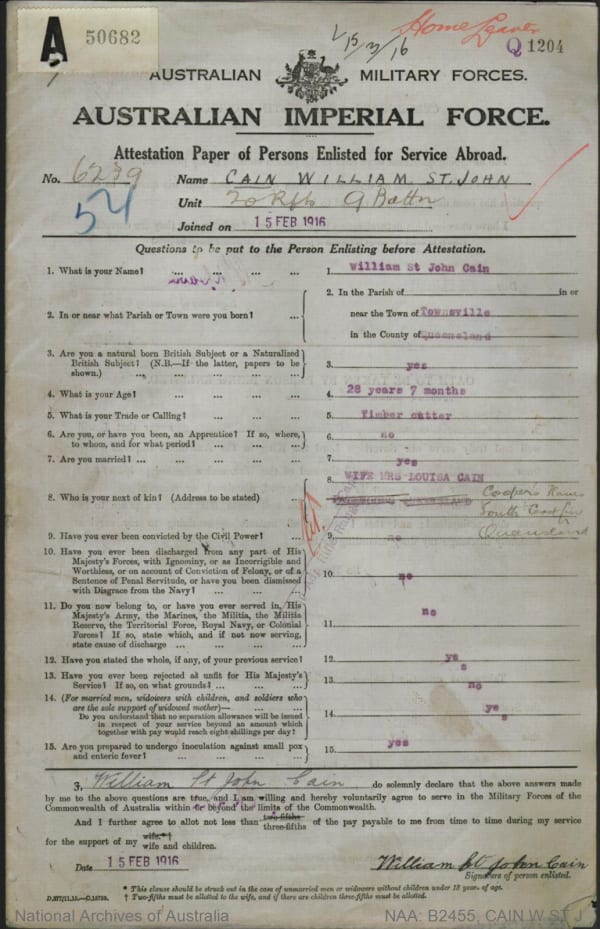 A 50682
15/3/16
Home Leave
Q 1204
AUSTRALIAN MILITARY FORCES.
AUSTRALIAN IMPERIAL FORCE.
Attestation Paper of Persons Enlisted for Service Abroad.
No. 6239 Name CAIN WILLIAM ST. JOHN
54
Unit 20 Rfts 9 Battn
Joined on 15 FEB 1916
Questions to be put to the Person Enlisting before Attestation.
1. What is your Name? ... ... ... ... 1. William St John Cain
2. In or near what Parish or Town were you born? ... 2. In the Parish of in or
near the Town of Townsville
in the County of Queensland
3. Are you a natural born British Subject or a Naturalized
British Subject? (N.B.—If the latter, papers to be
shown.) ... ... ... ... ... 3. yes
4. What is your Age? ... ... ... ... 4. 28 years 7 months
5. What is your Trade or Calling? ... ... ... 5. Timber cutter
6. Are you, or have you been, an Apprentice? If so, where,
to whom, and for what period? ... ... ... 6. no
7. Are you married? ... ... ... ... ... 7. yes
8. Who is your next of kin? (Address to be stated) ... 8. WIFE MRS LOUISA CAIN
Cooper's
South
Queensland
9. Have you ever been convicted by the Civil Power? ... 9. no
10. Have you ever been discharged from any part of His
Majesty's Forces, with Ignominy, or as Incorrigible and
Worthless, or on account of Conviction of Felony, or of a
Sentence of Penal Servitude, or have you been dismissed
with Disgrace from the Navy? ... ... ... 10. no
11. Do you now belong to, or have you ever served in, His
Majesty's Army, the Marines, the Militia, the Militia
Reserve, the Territorial Force, Royal Navy, or Colonial
Forces? If so, state which, and if not now serving,
state cause of discharge ... ... ... ... 11. no
12. Have you stated the whole, if any, of your previous service? 12. yes
13. Have you ever been rejected as unfit for His Majesty's
Service? If so, on what grounds? ... ... ... 13. no
14. (For married men, widowers with children, and soldiers who
are the sole support of widowed mother)— ... ...
Do you understand that no separation allowance will be issued
in respect of your service beyond an amount which
together with pay would reach eight shillings per day? 14. yes
15. Are you prepared to undergo inoculation against small pox
and enteric fever? ... ... ... ... 15. yes
I, William St John Cain do solemnly declare that the above answers made
by me to the above questions are true, and I am willing and hereby voluntarily agree to serve in the Military Forces of the
Commonwealth of Australia within or beyond the limits of the Commonwealth.
And I further agree to allot not less than two-fifths three-fifths of the pay payable to me from time to time during my service
for the support of my wife.*† wife and children.
Date 15 FEB 1916
William St John Cain
Signature of person enlisted.
* This clause should be struck out in the case of unmarried men or widowers without children under 18 years of age.
† Two-fifths must be allotted to the wife, and if there are children three-fifths must be allotted.
National Archives of Australia
NAA: B2455, CAIN W ST J